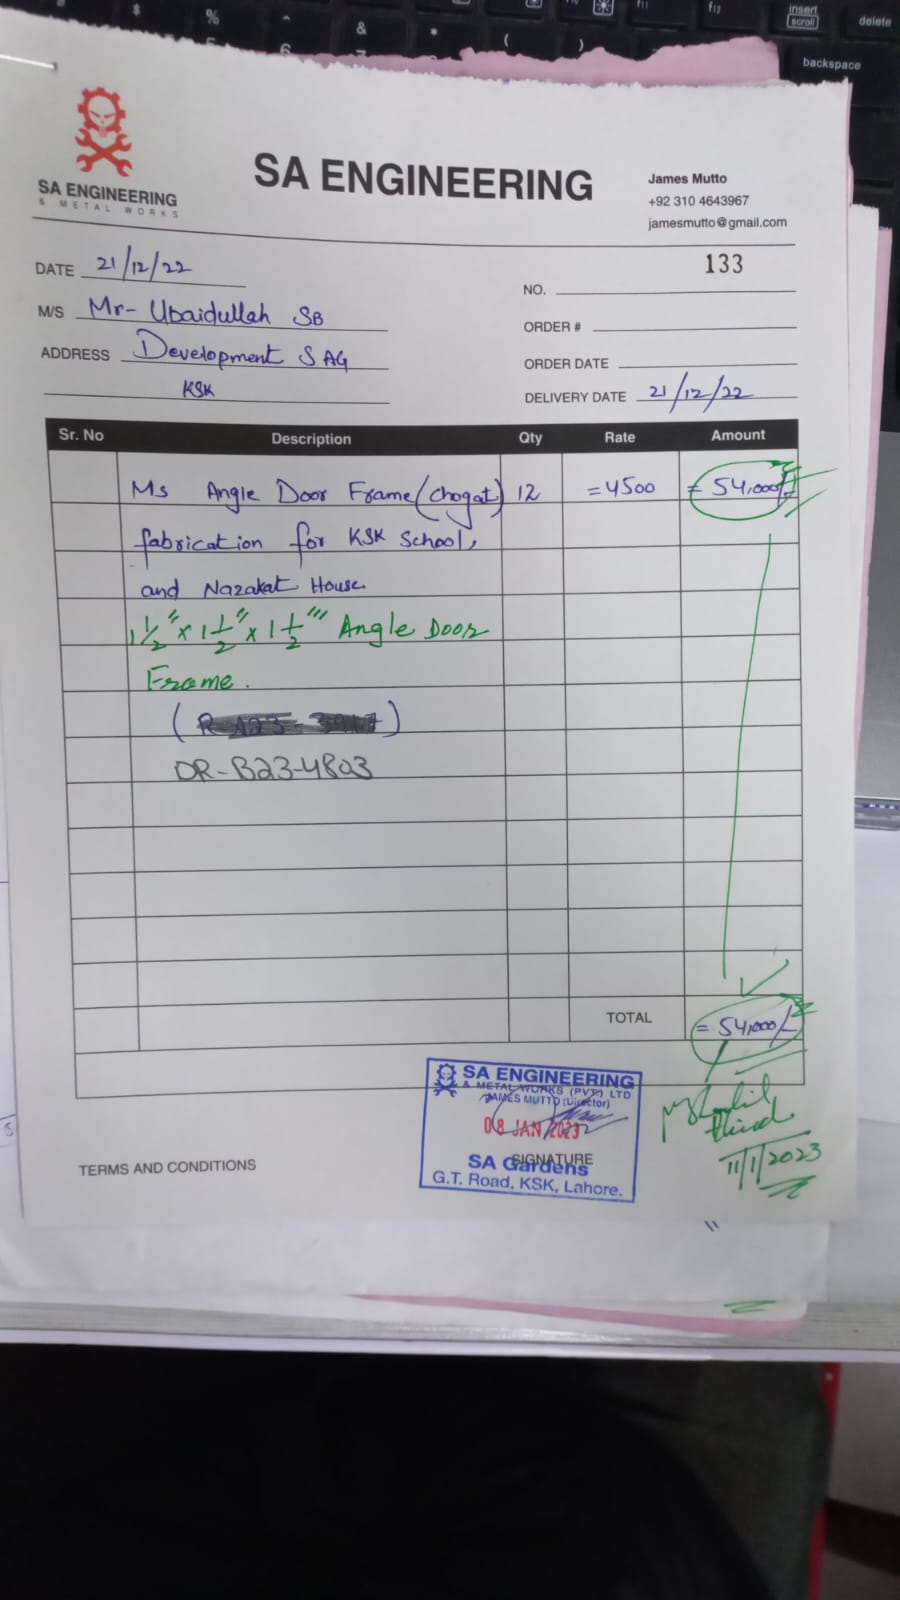 $ % ^ & * ( )
6
f11 f12 insert scroll delete
backspace
SA ENGINEERING
& METAL WORKS
SA ENGINEERING
James Mutto
+92 310 4643967
jamesmutto@gmail.com
DATE 21/12/22
133
NO.
M/S Mr- Ubaidullah SB
ORDER #
ADDRESS Development SAG
ORDER DATE
KSK
DELIVERY DATE 21/12/22
Sr. No Description Qty Rate Amount
Ms Angle Door Frame (chogat) 12 =4500 = 54,000/-
fabrication for KSK School,
and Nazakat House
1 1/2" x 1 1/2" x 1 1/2"' Angle Door
Frame.
DR-B23-4803
TOTAL = 54,000/-
SA ENGINEERING
& METAL WORKS (PVT.) LTD
JAMES MUTTO (Director)
08 JAN 2023
SIGNATURE
SA Gardens
G.T. Road, KSK, Lahore.
11/1/2023
TERMS AND CONDITIONS